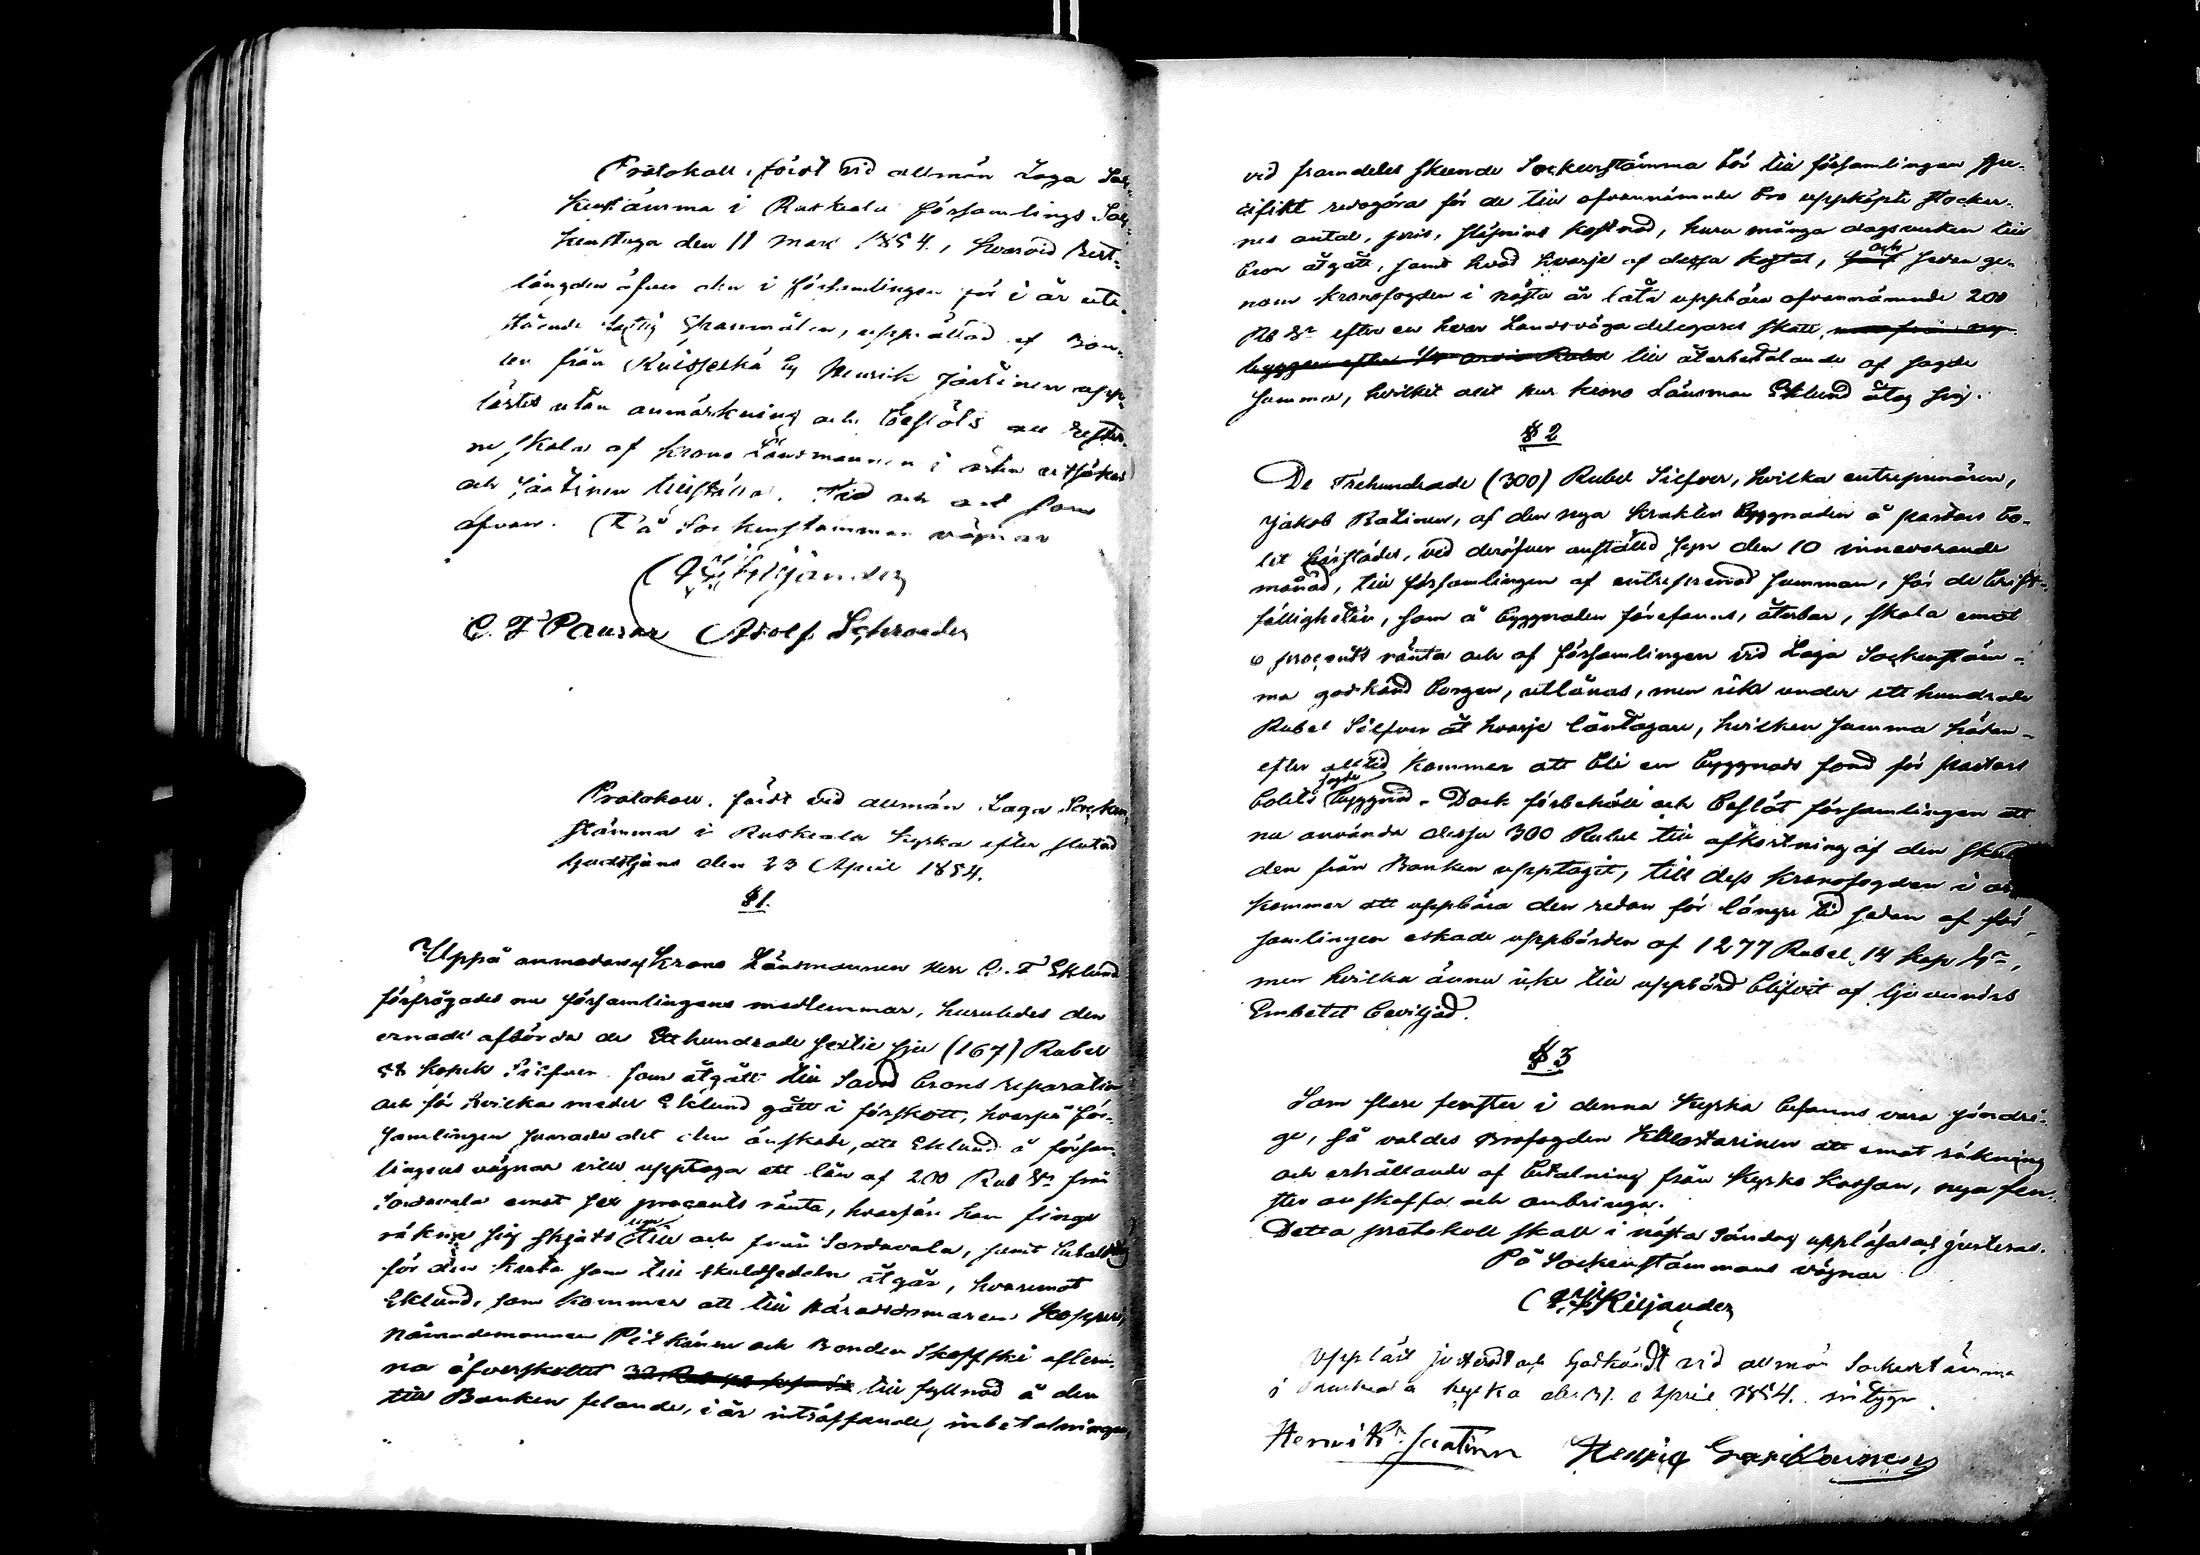 Protokoll, fördt vid allmän Laga Soc-
kenstämma i Ruskeala församlings Soc-
kenstuga den 11 mars 1854., hvarvid Rest-
längden öfver den i församlingen för i år ute-
stående spannmålen, upprättad af Bon-
den från by Henrik Jaatinen upp-
lästes utan anmärkning och beslöts att rester-
ne skola af Krono Länsmannen i orten utsökas
och Jaatinen tillställas. Tid och ort som
ofvan. På Sockenstämmans vägnar
Kiljander
Adolf Schroeder
Protokoll, fördt vid allmän Laga Socken-
stämma i Ruskeala kyrka efter slutad
Gudstjenst den 23 April 1854.
§ 1.
Uppå anmodan af Krono Länsmannen Herr C. F. Eklund
förfrågades nu församlingens medlemmar, huruledes den
ernade afbörda de Etthundrade sextie sju (167) Rubel
kopek Silfver som åtgått till brons reparation
och för hvilka medel Eklund gått i förskott, hvarpå för-
samlingen svarade det den önskade, att Eklund å försam-
lingens vägnar ville upptaga ett lån af 200 Rub Sr från
Sordavala emot sex procents ränta, hvarför han finge
räkna sig skjuts till och från Sordavala, samt betalning
för den karta som till skuldsedeln åtgår, hvaremot
Eklund, som kommer att till Häradsdomaren
Nämndemannen Pitkänen och Bonden aflem-
na öfverskottet till fyllnad å den
till Banken felande, i år inträffande, inbetalningen,
vid framdeles skeende Sockenstämma bör till församlingen spe-
cifikt redogöra för de till ofvannämnde bro uppköpte stockar-
nes antal, pris, kostnad, huru många dagsverken till
bron åtgått, samt hvad hvarje af dessa kostat, och sedan ge-
nom kronofogden i nästa år låta uppbära ofvannämnde 200
Rb Sr efter en hvar Landsväga delegares skatt,
till återbetalande af sagde
summa, hvilket allt Herr Krono Länsman Eklund åtog sig.
§ 2
De Trehundrade (300) Rubel Silfver, hvilka entreprenören,
Jakob Ratinen, af den nya byggnaden å pastors bo-
let vid deröfver anställd syn den 10 innevarande
månad, till församlingen af entreprenad summan, för de brist-
fälligheter, som å byggnaden förefanns, återbar, skola emot
6 procents ränta och af församlingen vid Laga Sockenstäm-
ma godkänd borgen, utlånas, men icke under ett hundrade
Rubel Silfver åt hvarje låntagare, hvilken summa hädan-
efter alltid kommer att bli en byggnads fond för pastors
bolets sagde byggnad. Dock förbehöll och beslöt församlingen att
nu använda dessa 300 Rubel till afkortning af den skul-
den från Banken upptagit, till dess kronofogden i år
kommer att uppbära den redan för längre tid sedan af för-
samlingen äskade uppbörden af 1277 Rubel 14 kop Sr,
men hvilka ännu icke till uppbörd blifvit af Guvernörs
Embetet beviljad.
§ 3
Som flere fenster i denna kyrka befanns vara söndri-
ge, så valdes Brofogden att emot räkning
och erhållande af betalning från Kyrko Kassan, nya fen-
ster anskaffa och anbringa.
Detta protokoll skall i nästa söndag uppläsas och justeras.
På Sockenstämmans vägnar
Kiljander
Uppläst justeradt och Godkändt vid allmän Sockenstämma
i Ruskeala kyrka den April 1854. intyga
Jaatinen